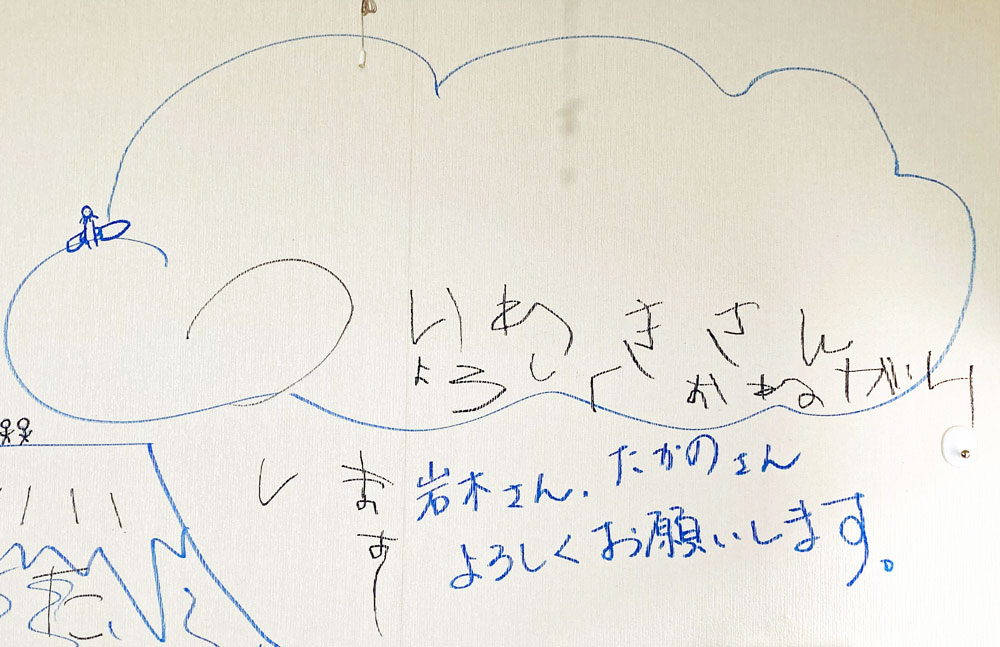 いわきさん
よろしくおねがい
します
岩木さん、たかのさん
よろしくお願いします。